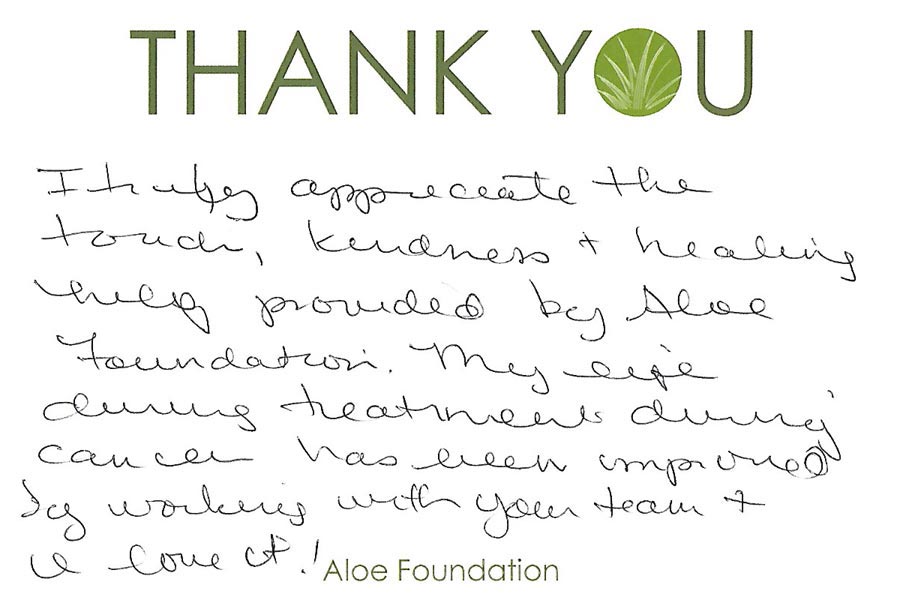 THANK YOU
I truly appreciate the
touch, kindness + healing
help provided by Aloe
Foundation. My life
during treatments during
cancer has been improved
by working with your team +
I love it!
Aloe Foundation